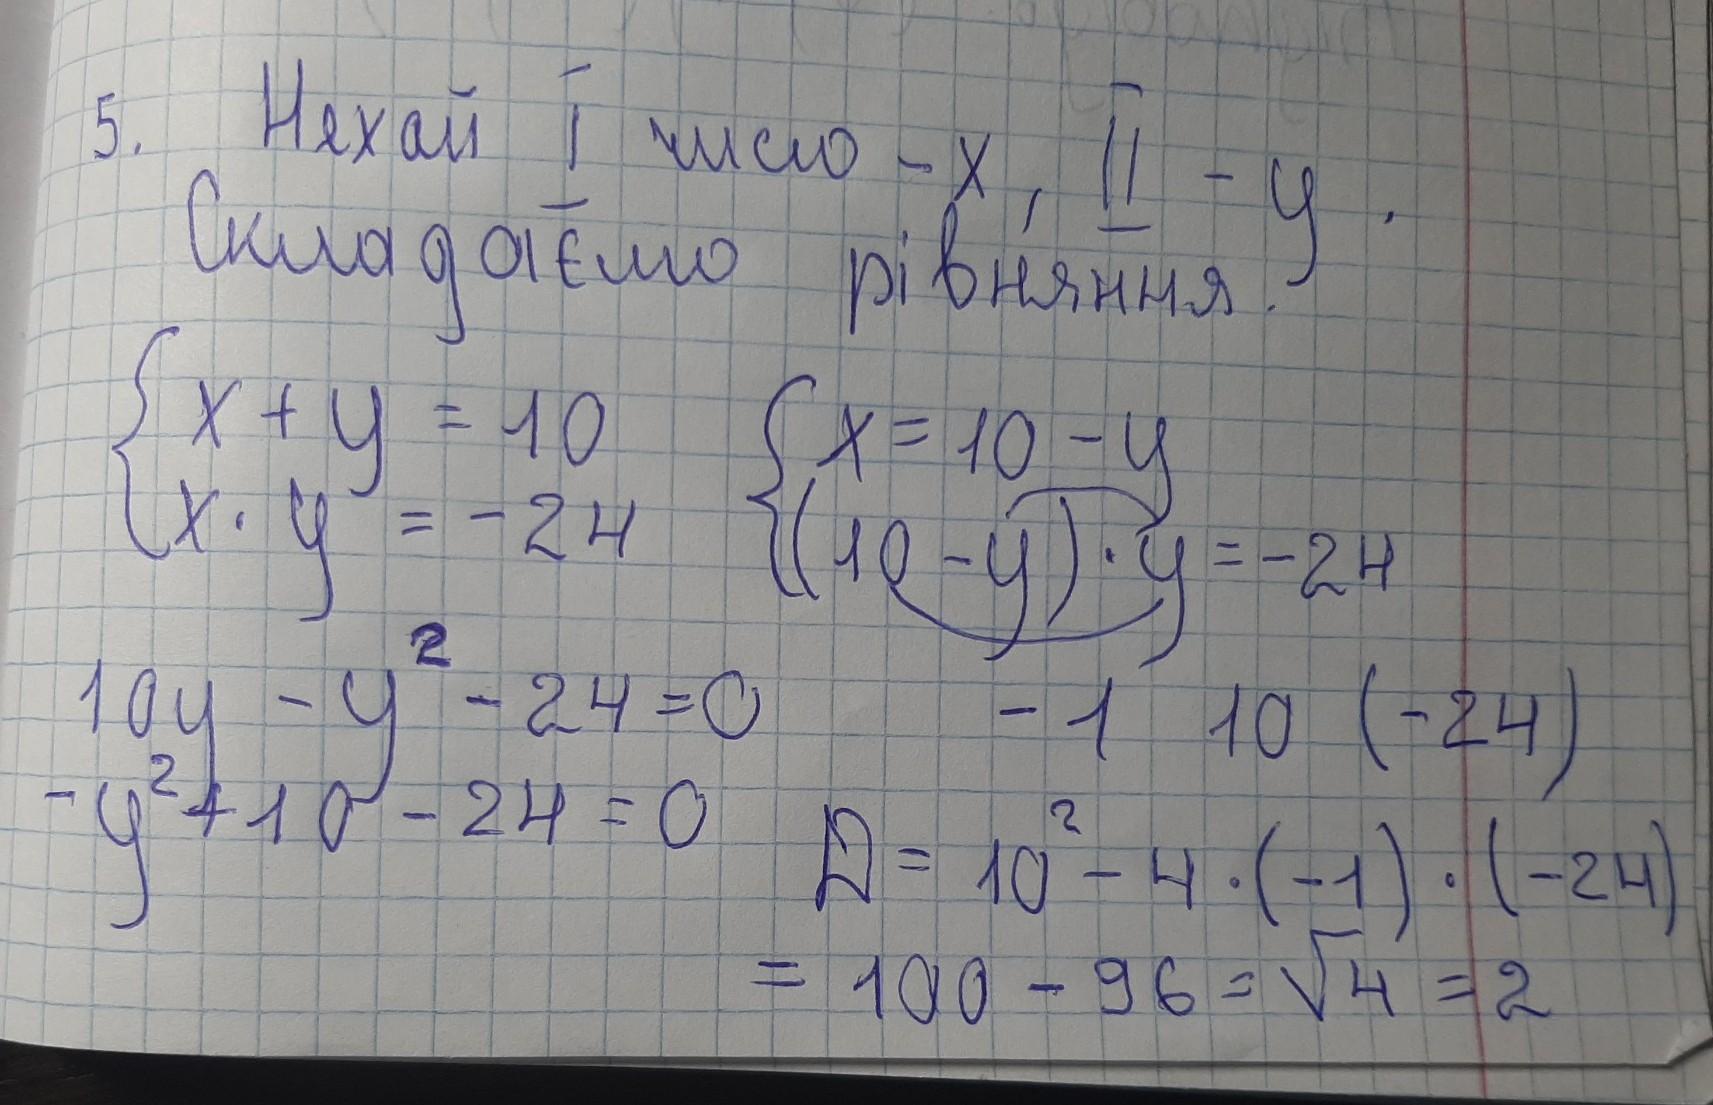 5. Нехай I число - x, II - y.
Складаємо рівняння.
{ x + y = 10
x · y = -24
{ x = 10 - y
(10 - y) · y = -24
10y - y² - 24 = 0
-y² + 10 - 24 = 0
-1 10 (-24)
D = 10² - 4 · (-1) · (-24)
= 100 - 96 = √4 = 2